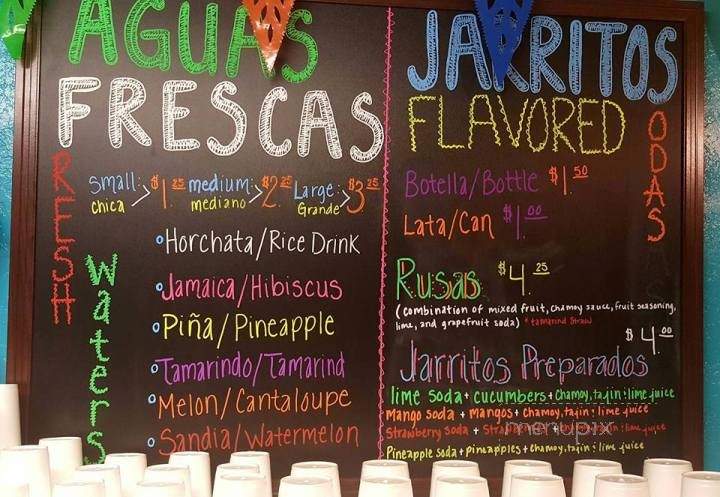 AGUAS
FRESCAS
RESH
Waters
Small: $1.25 medium: $2.25 Large: $3.25
chica mediano Grande
Horchata/Rice Drink
Jamaica/Hibiscus
Piña/Pineapple
Tamarindo/Tamarind
Melon/Cantaloupe
Sandia/Watermelon
JARRITOS
FLAVORED
ODAS
Botella/Bottle $1.50
Lata/Can $1.00
Rusas $4.25
(combination of mixed fruit, chamoy sauce, fruit seasoning,
lime, and grapefruit soda) *tamarind straw
$4.00
Jarritos Preparados
lime soda + cucumbers + chamoy, tajin : lime juice
mango soda + mangos + chamoy, tajin : lime juice
Strawberry soda + lime juice
Pineapple soda + pineapples + chamoy, tajin : lime juice
menupix